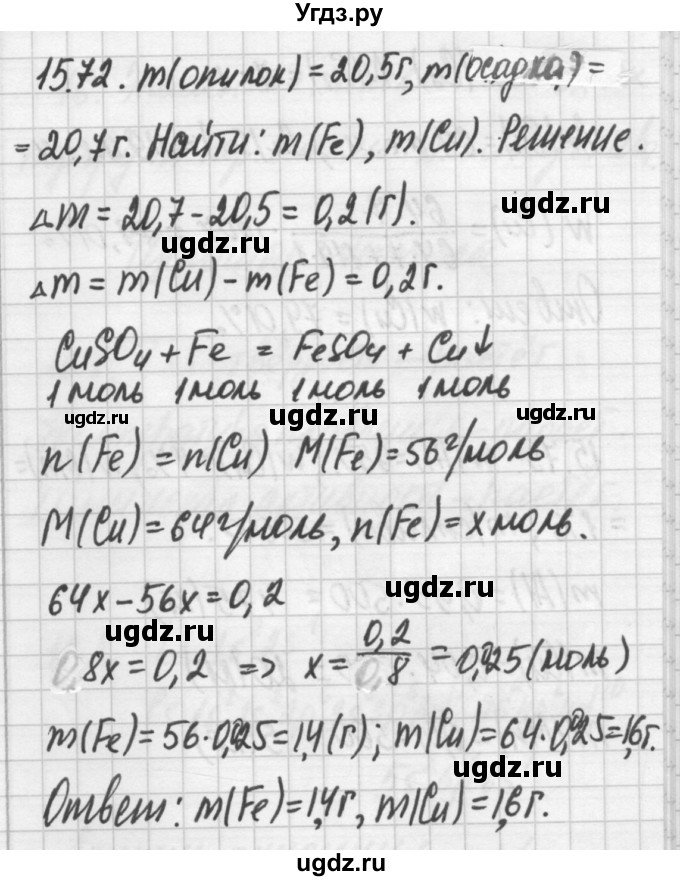 Угдз.ру
15.72. m(опилок) = 20,5г, m(осадка) =
= 20,7 г. Найти: m(Fe), m(Cu). Решение.
Δm = 20,7 - 20,5 = 0,2 (г).
ugdz.ru ugdz.ru
Δm = m(Cu) - m(Fe) = 0,2 г.
CuSO4 + Fe = FeSO4 + Cu↓
1 моль 1 моль 1 моль 1 моль
ugdz.ru ugdz.ru ugdz.ru
n(Fe) = n(Cu) M(Fe) = 56 г/моль
M(Cu) = 64 г/моль, n(Fe) = x моль.
ugdz.ru
64x - 56x = 0,2
ugdz.ru
8x = 0,2 => x = 0,2/8 = 0,025 (моль)
m(Fe) = 56·0,025 = 1,4 (г); m(Cu) = 64·0,025 = 1,6 г.
ugdz.ru
Ответ: m(Fe) = 1,4 г, m(Cu) = 1,6 г.
ugdz.ru